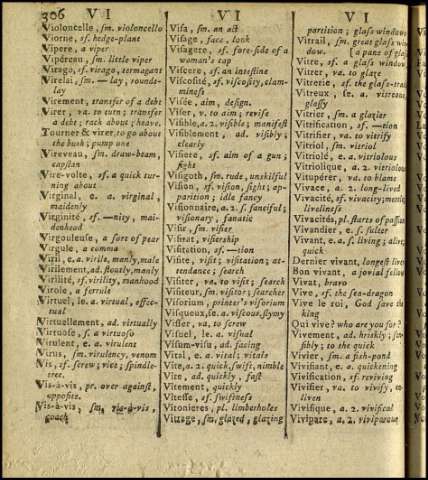 306 V I
Violoncelle, sm. violoncello
Viorne, sf. hedge-plant
Vipere, a viper
Vipéreau, sm. little viper
Virago, sf. virago, termagant
Virelai, sm. —lay; rounde-
lay
Virement, transfer of a debt
Virer, va. to turn; transfer
a debt; tack about; heave.
Tourner & virer, to go about
the bush; pump one
Vireveau, sm. draw-beam,
capstan
Vire-volte, sf. a quick tur-
ning about
Virginal, e. a. virginal,
maidenly
Virginité, sf. —nity, mai-
denhood
Virgouleuse, a sort of pear
Virgule, a comma
Viril, e. a. virile, manly, male
Virilement, ad. stoutly, manly
Virilité, sf. virility, manhood
Virole, a ferrule
Virtuel, le. a. virtual, effec-
tual
Virtuellement, ad. virtually
Virtuose, s. a virtuoso
Virulent, e. a. virulent
Virus, sm. virulency, venom
Vis, sf. screw; vice; spindle-
tree.
Vis-à-vis, pr. over against,
opposite.
Vis-à-vis, sm, vis-à-vis,
coach
V I
Visa, sm. an act
Visage, face, look
Visagere, sf. fore-side of a
woman's cap
Viscere, sf. an intestine
Viscosité, sf. viscosity, clam-
miness
Visée, aim, design.
Viser, v. to aim; revise
Visible, a. 2. visible; manifest
Visiblement, ad. visibly;
clearly
Visiere, sf. aim of a gun;
sight
Visigoth, sm. rude, unskilful
Vision, sf. vision, sight; ap-
parition; idle fancy
Visionnaire, a. 2. s. fanciful;
visionary, fanatic
Visir, sm. visier
Visirat, visiership
Visitation, sf. —tion
Visite, visit; visitation; at-
tendance; search
Visiter, va. to visit; search
Visiteur, sm. visitor; searcher
Visorium, printer's visorium
Visqueux, se. a. viscous, slymy
Visser, va. to screw
Visuel, le. a. visual
Visum-visu, ad. facing
Vital, e. a. vital; vitals
Vite, a. 2. quick, swift, nimble
Vite, ad quickly, fast
Vitement, quickly
Vitesse, sf. swiftness
Vitonieres, pl. limberholes
Vitrage, sm, glazed, glazing
V I
partition; glass window
Vitrail, sm. great glass win-
dow. [a pane of glass
Vitre, sf. a glass window
Vitrer, va. to glaze
Vitrerie, sf. the glass-tra
Vitreux, se. a. vitreous,
glassy
Vitrier, sm. a glazier
Vitrification, sf. —tion
Vitrifier, va. to vitrify
Vitriol, sm. vitriol
Vitriolé, e. a. vitriolous
Vitriolique, a. 2. vitriolous
Vitupérer, va. to blame
Vivace, a. 2. long-lived
Vivacité, sf. vivacity; mettle
liveliness
Vivacités, pl. starts of passion
Vivandier, e. s. sutler
Vivant, e. a. s. living; alive,
quick
Dernier vivant, longest liver
Bon vivant, a jovial fellow
Vivat, bravo
Vive, sf. the sea-dragon
Vive le roi, God save the
king
Qui vive? who are you for?
Vivement, ad. briskly; sen-
sibly; to the quick
Vivier, sm. a fish-pond
Vivifiant, e. a. quickening
Vivification, sf reviving
Vivifier, va. to vivify, en-
liven
Vivifique, a. 2. vivifical
Vivipare, a. 2. viviparous